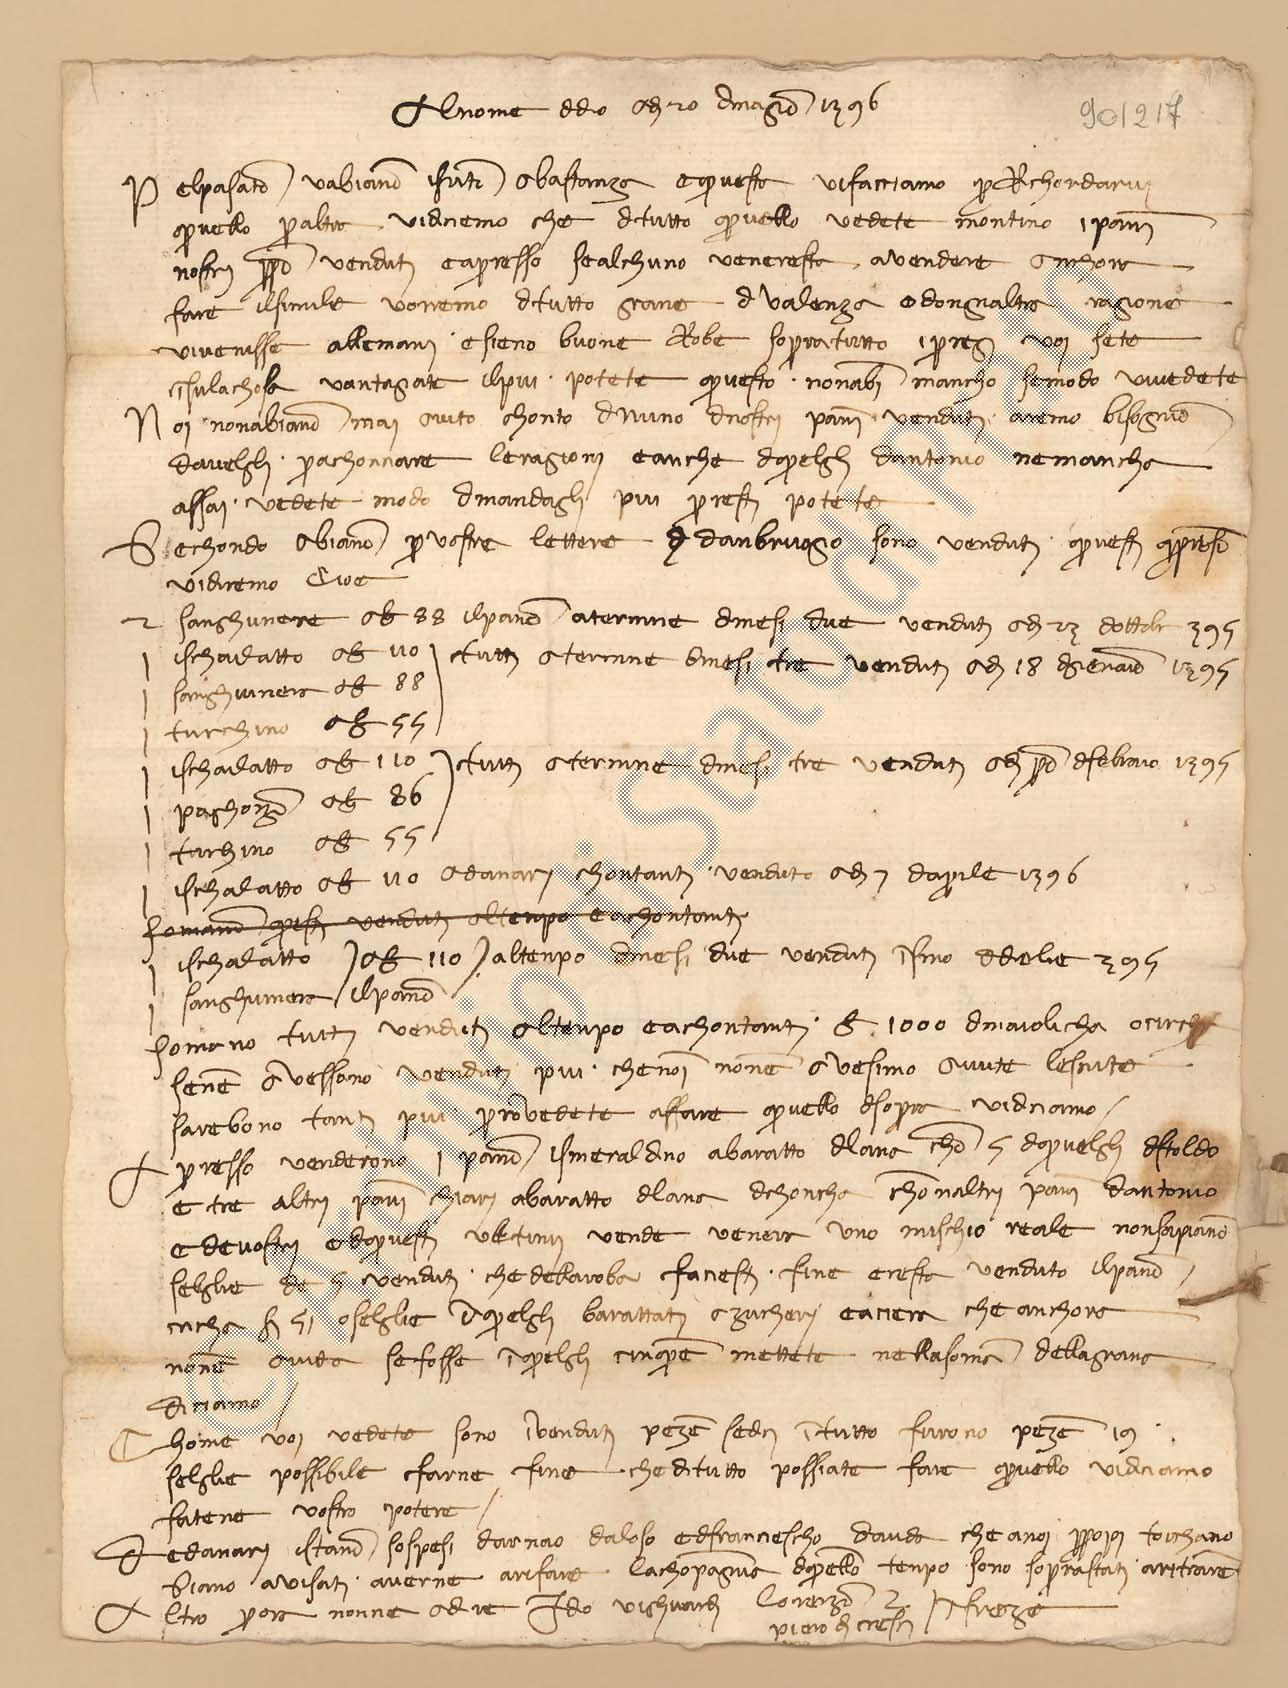 Al nome di Dio ad 20 di magio 1396
901217
Pel pasato v'abiamo isritto a bastanza e questa vi facciamo per richordarvi
quello per altra vi diciemo che di tutto quello vedete montino i panni
nostri venduti e apresso se alchuno ve ne resta a vendere anchora
fare il simile vorremo di tutto grane di Valenza e d'ongn'altra ragione
vi venisse alle mani e sieno buone robe sopra tutto i pregi voi sete
in su la chosa vantagate il piu potete questo non abi mancho se modo vi vedete
Noi non abiamo mai auto chonto di niuno di nostri panni venduti aremo bisogno
d'avelghi per achonciare le ragioni e anche di quelghi d'Antonio ne mancha
assai vedete modo di mandaghi piu presti potete
Sechondo abiamo per vostre lettere da Anbruogo sono venduti questi
vi diremo cioe
2 sanghunere a £ 88 il panno a termine di mesi due venduti a di 23 d'ottobre 1395
1 ischarlatto a £ 110 tutti a termine di mesi tre venduti a di 18 di gienaio 1395
1 sanghuinera a £ 88
1 turchino a £ 55
1 ischarlatto a £ 110 tutti a termine di mesi tre venduti a di primo di febraio 1395
1 paghonazo a £ 86
1 turchino a £ 55
1 ischarlatto a £ 110 a danari chontanti venduto a di 7 d'aprile 1396
somano questi venduti al tenpo e a chontanti
1 ischarlatto a £ 110 al tenpo di mesi due venduti
1 sanghuinera il panno
Somano tutti venduti al tenpo e a chontanti £ 1000 di Maiolicha o circha
se ne avessono venduti piu che noi non n'avesimo aute le scritte
sarebono tanti piu provedete affare quello di sopra vi diciamo
Apresso venderono 1 panno ismeraldino a baratto di lana 5 di quelghi di Stoldo
e tre altri panni chiari a baratto di lana di choncha chon altri panni d'Antonio
e de vostri e di questi ultimi vende ve n'era uno mischio reale non sapiamo
s'elghie de 5 venduti che della roba faciesti fine e resta venduto il panno
circha 51 o s'elghie di quelghi barattati a zucheri e a ciera che anchora
non n'e auto se fosse in quelghi cinque mettete nella soma della grana
diciamo
Chome voi vedete sono i venduti peze sedici in tutto furono peze 19
s'elghie possibile farne fine che di tutto possiate fare quello vi diciamo
fatene vostro potere
De danari istanno sospesi d'Arnao Daloso e di Franciescho Davit che a noi tocchano
siamo avisati averne a rifare la chopagnia di quello tenpo sono soprastati a ritrare
Altro per ora non n'e a dire Idio vi ghuardi Lorenzo
Piero di Cresci in Firenze